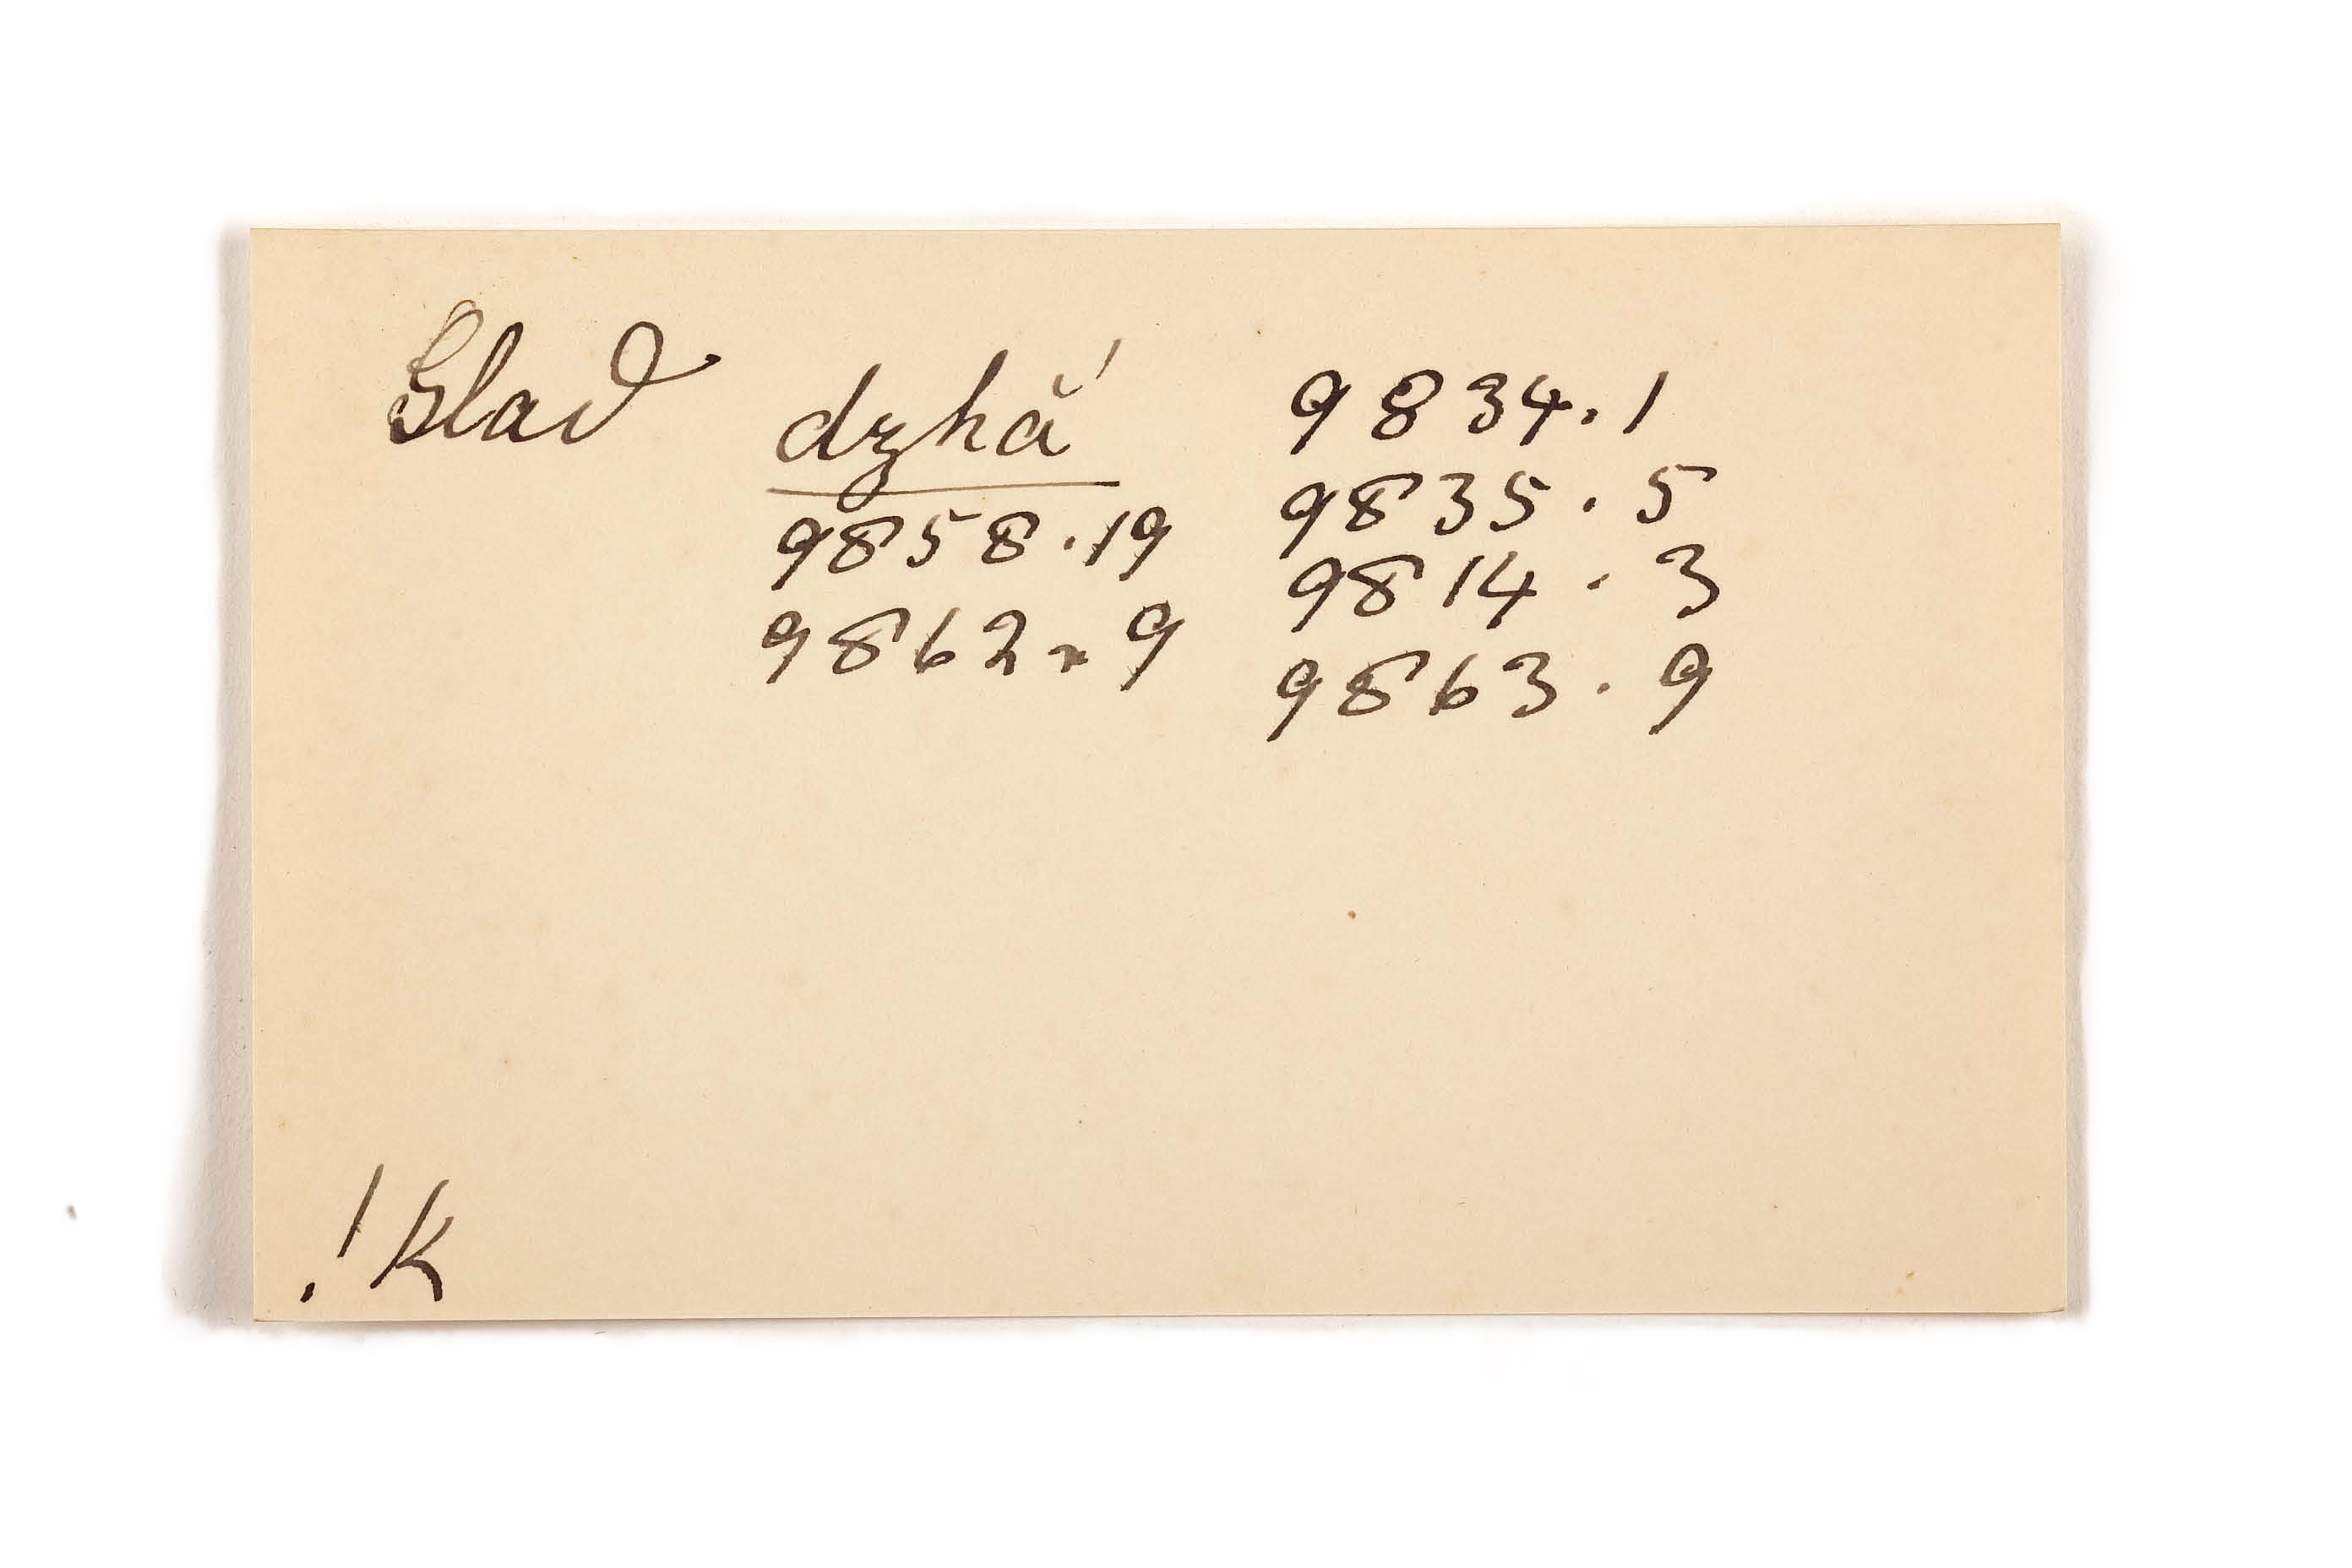 Glad dzhắ 9834.1
9835.5
9858.19 9814.3
9862.9 9863.9
!k